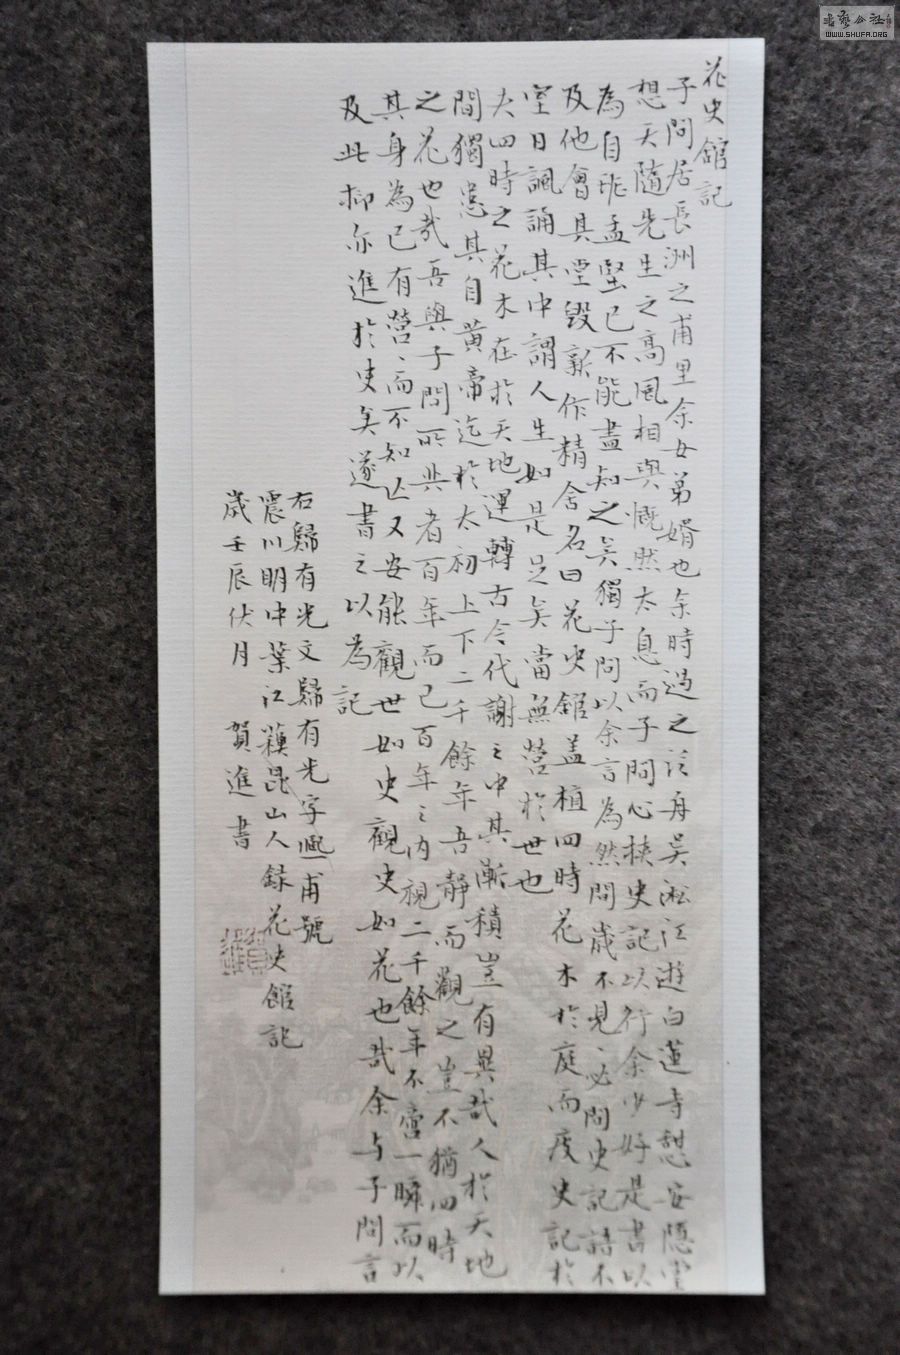 花史館記
子問居長洲之甫里余女弟婿也余時過之泛舟吳淞江遊白蓮寺憇安隱堂
想天隨先生之高風相與慨然太息而子問必挾史記以行余少好是書以
為自班孟堅已不能盡知之矣獨子問以余言為然間歲不見見必問史記語不
及他會其堂毀新作精舍名曰花史館蓋植四時花木於庭而庋史記於
室日諷誦其中謂人生如是足矣當無營於世也
夫四時之花木在於天地運轉古今代謝之中其漸積豈有異哉人於天地
間獨患其自黃帝迄於太初上下二千餘年吾靜而觀之豈不猶四時
之花也哉吾與子問所共者百年而已百年之內視二千餘年不啻一瞬而以
其身為己有營營而不知止又安能觀世如史觀史如花也哉余与子問言
及此抑亦進於史矣遂書之以為記
右歸有光文歸有光字熙甫號
震川明中葉江蘓昆山人錄花史館記
歲壬辰伏月 賀進書
書藝公社
WWW.SHUFA.ORG